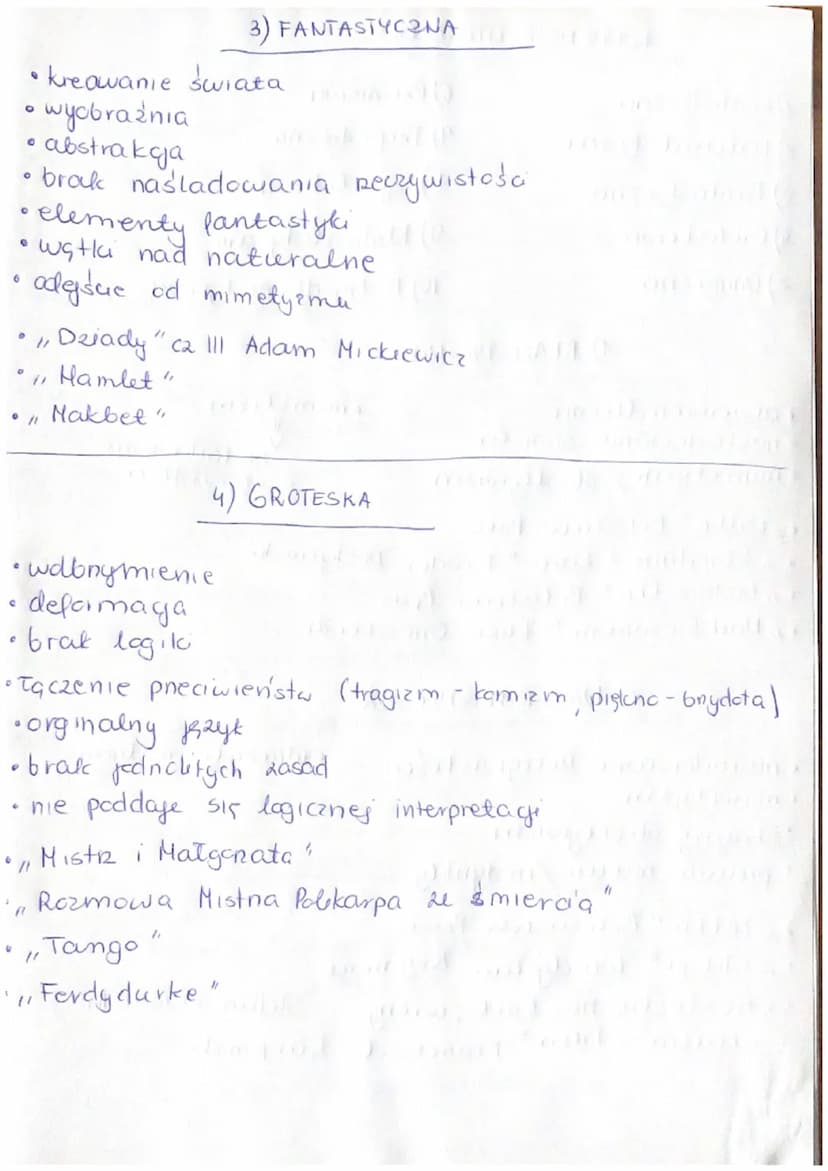 3) FANTASTYCZNA
• kreowanie świata
• wyobraźnia
• abstrakcja
• brak naśladowania rzeczywistości
• elementy fantastyki
• wątki nad naturalne
• odejście od mimetyzmu
• „Dziady" cz III Adam Mickiewicz
• „Hamlet"
• „Makbet"
4) GROTESKA
• wolbrzymienie
• deformacja
• brak logiki
• łączenie przeciwieństw (tragizm - komizm, piękno - brzydota)
• orginalny język
• brak jednolitych zasad
• nie poddaje się logicznej interpretacji
• „Mistrz i Małgorzata"
• „Rozmowa Mistrza Polikarpa ze śmiercią"
• „Tango"
• „Ferdydurke"